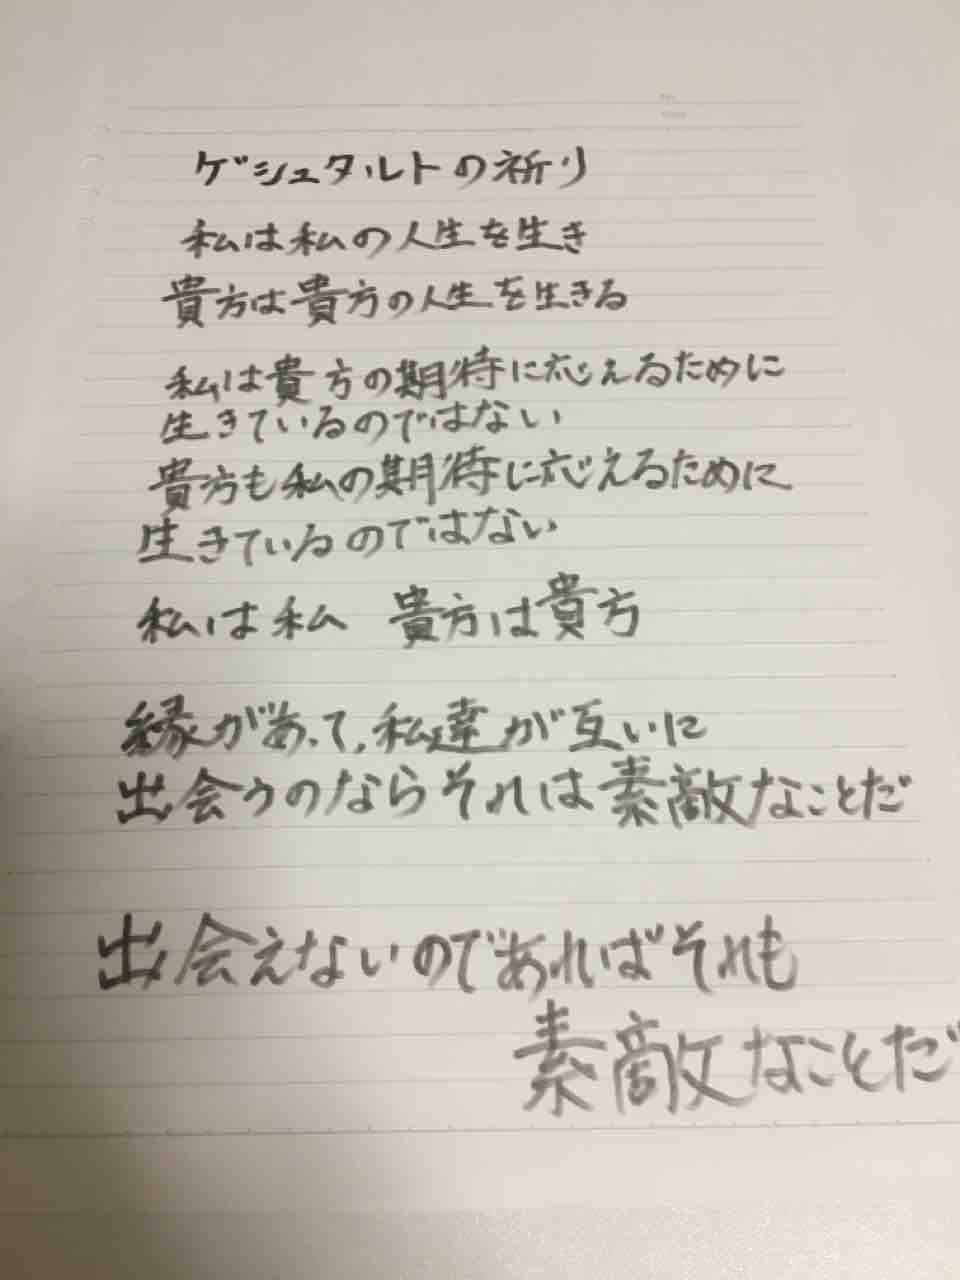 ゲシュタルトの祈り
私は私の人生を生き
貴方は貴方の人生を生きる
私は貴方の期待に応えるために
生きているのではない
貴方も私の期待に応えるために
生きているのではない
私は私 貴方は貴方
縁があって、私達が互いに
出会うのならそれは素敵なことだ
出会えないのであればそれも
素敵なことだ